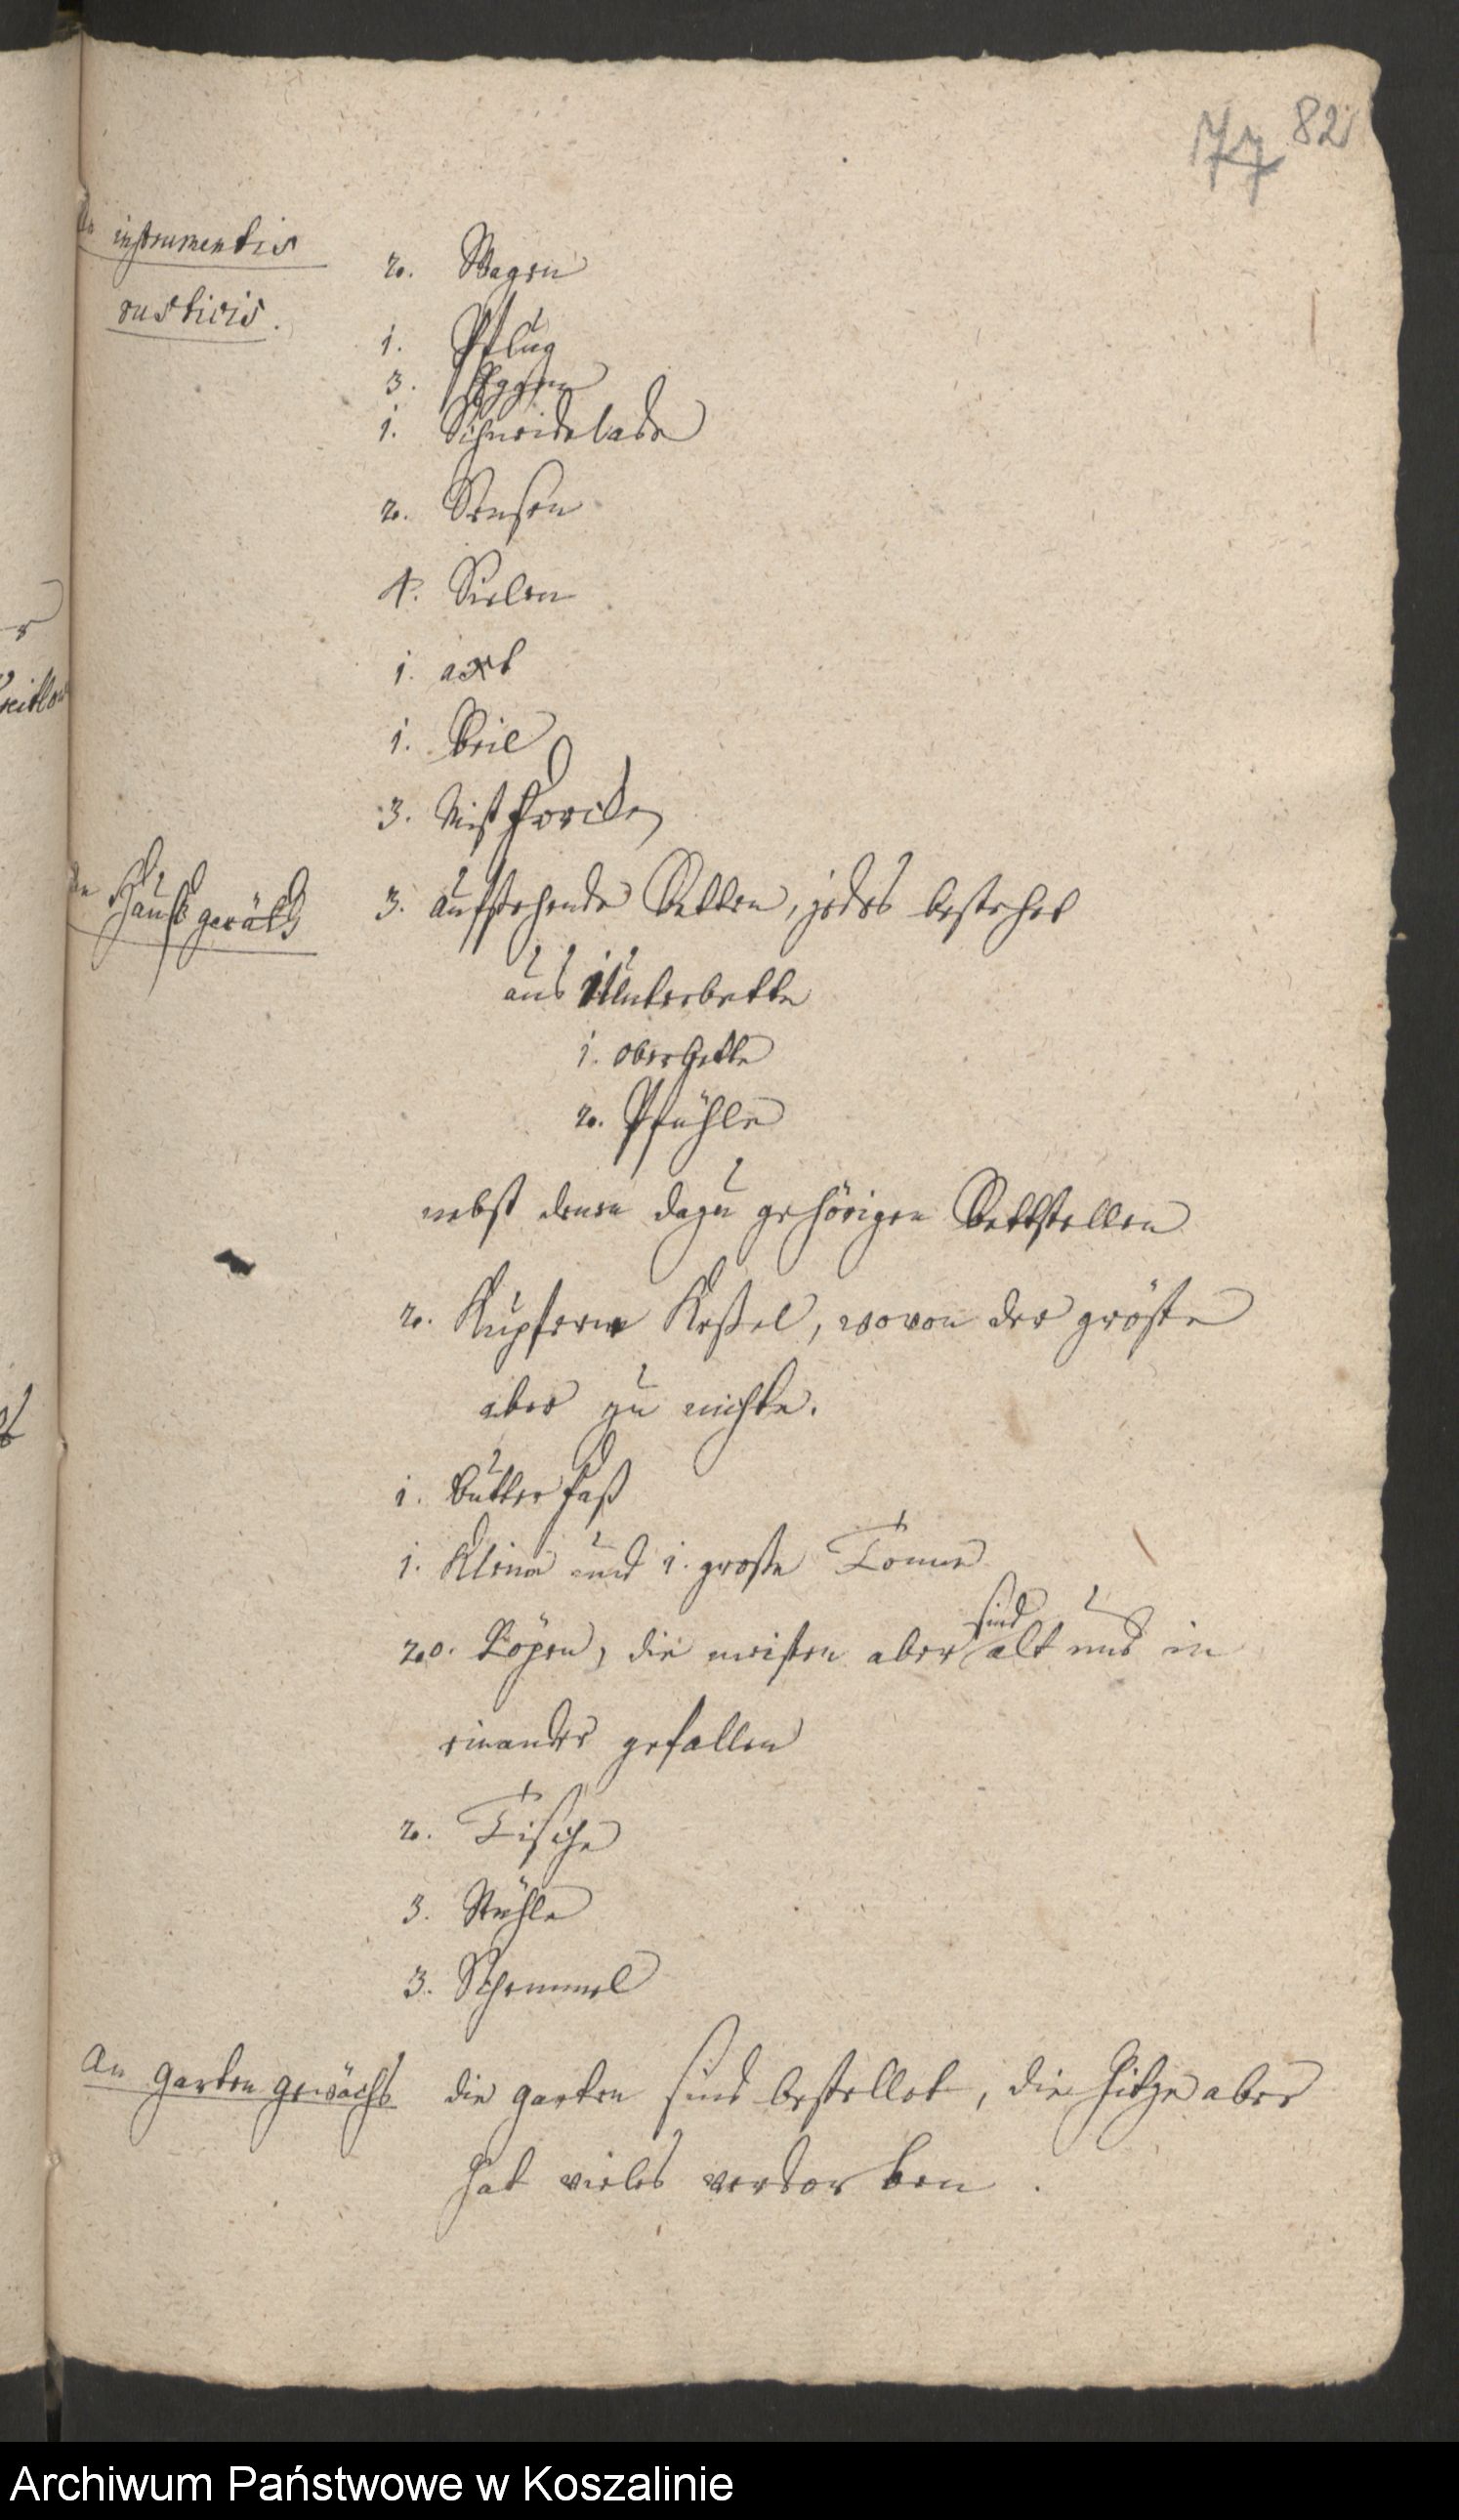 77 82
An instrumentis
rusticis.
2. Wagen
1. Pflug
3. Eggen
1. Schneidelade
2. Sensen
4. Sielen
1. axt
1. Beil
3. Mist Forcken
An Hauß geräth
3. aufstehende Betten, jedes bestehet
aus 1 Unterbette
1. oberbette
2. Pfühle
nebst denen dazu gehörigen Bettstellen
2. Kupferne Keßel, wovon der gröste
aber zu nichte.
1. Butter Faß
1. Kleine und 1. große Tonne
20. Köpen, die meisten aber sind alt und in
einander gefallen
2. Tische
3. Stühle
3. Schemmel
An Garten gewächs
die Garten sind bestellet, die Hitze aber
hat vieles verdorben.
Archiwum Państwowe w Koszalinie